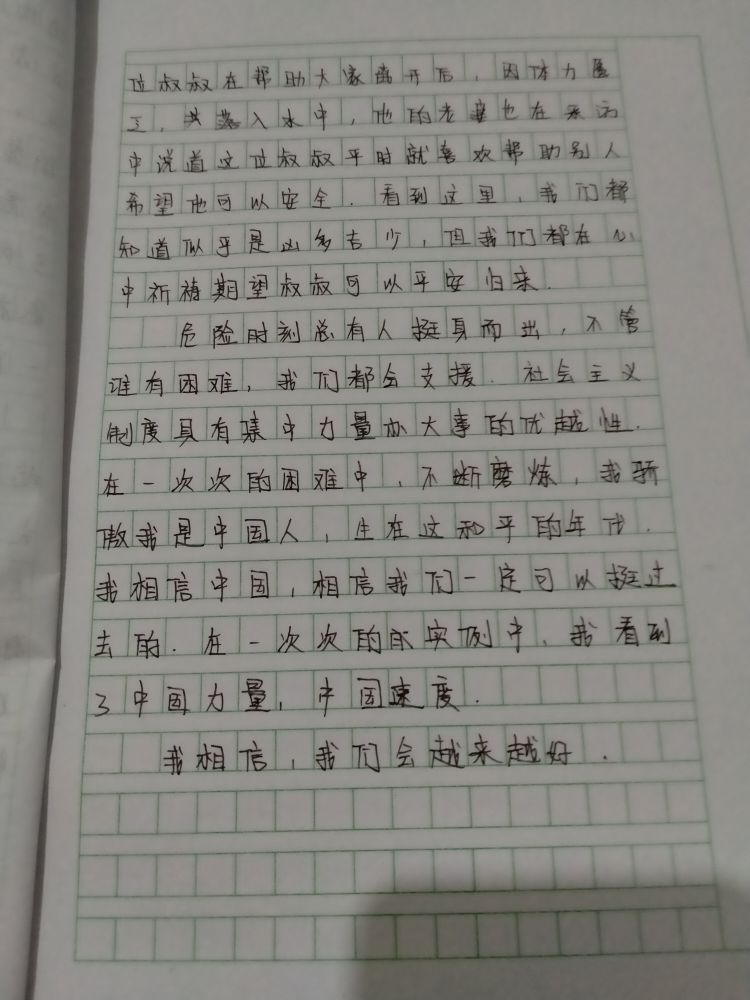 位叔叔在帮助大家离开后，因体力匮
乏，失落入水中，他的老妻也在采访
中说道这位叔叔平时就喜欢帮助别人
希望他可以安全．看到这里，我们都
知道似乎是凶多吉少，但我们都在心
中祈祷期望叔叔可以平安归来．
危险时刻总有人挺身而出，不管
谁有困难，我们都会支援．社会主义
制度具有集中力量办大事的优越性．
在一次次的困难中，不断磨炼，我骄
傲我是中国人，生在这和平的年代．
我相信中国，相信我们一定可以挺过
去的．在一次次的实例中，我看到
了中国力量，中国速度．
我相信，我们会越来越好．